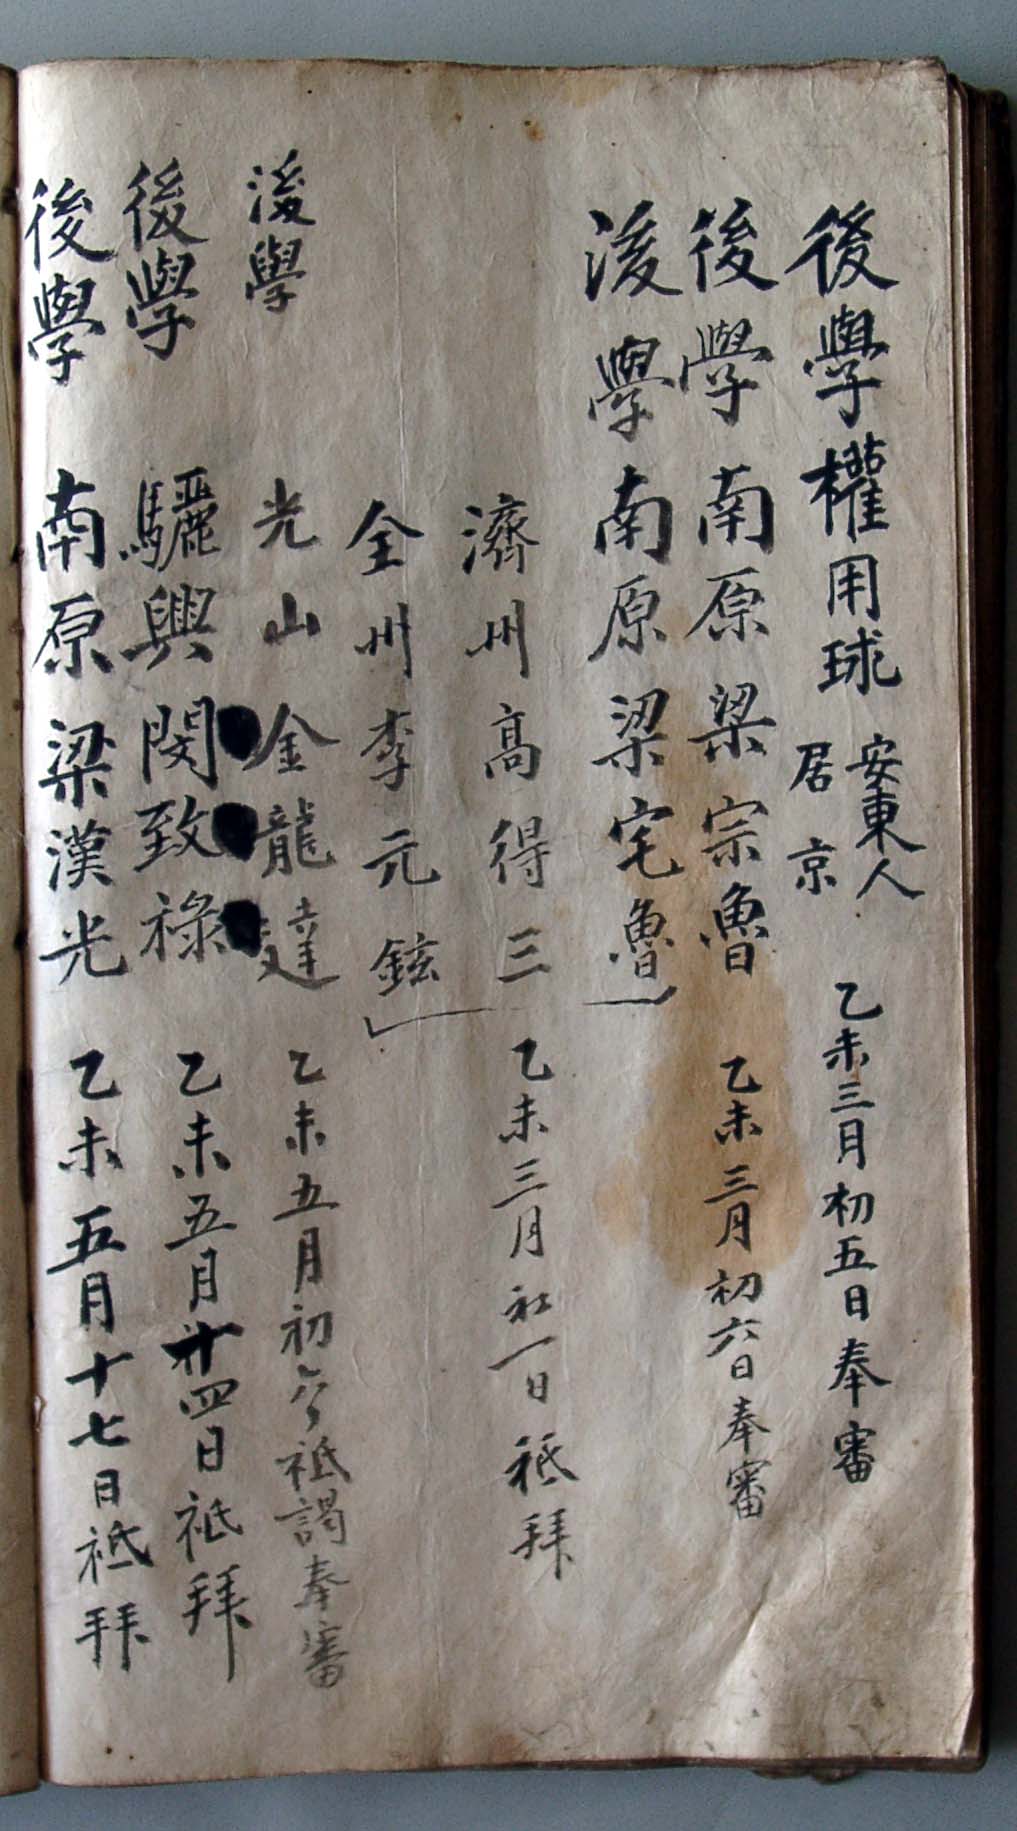 後學權用球 安東人 居京 乙未三月初五日奉審
後學南原梁宗魯 乙未三月初六日奉審
後學南原梁宅魯
濟州高得三 乙未三月初一日祗拜
全州李元鉉
後學 光山金龍達 乙未五月初六日祗謁奉審
後學 驪興閔致祿 乙未五月卄四日祗拜
後學 南原梁漢光 乙未五月十七日祗拜